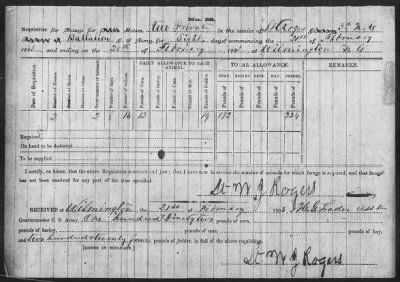 No. 33.
Requisition for Forage for Private in the service of Co. 3d N.C.
Battalion C. S. Army for Eight days commencing the 21st of February
186 and ending on the 28th of February 186 at Wilmington N.C.
Date of Requisition. Number of Horses. Number of Mules. Total number of animals. Number of Days. DAILY ALLOWANCE TO EACH ANIMAL. TOTAL ALLOWANCE. REMARKS.
Pounds of Corn. Pounds of Fodder. CORN. BARLEY. OATS. HAY. FODDER.
2 2 8 16 12 14 192 224
Required
On hand to be deducted
To be supplied
I certify, on honor, that the above Requisition is correct and just; that I have now in service the number of animals for which forage is required, and that forage
has not been received for any part of the time specified.
Wm J Rogers
RECEIVED at Wilmington the 21st of February 186 of
Quartermaster C. S. Army, One hundred & ninety two pounds of corn,
pounds of barley, pounds of oats, pounds of hay,
and two hundred & twenty four pounds of fodder, in full of the above requisition.
[SIGNED IN DUPLICATE.]
Wm J Rogers